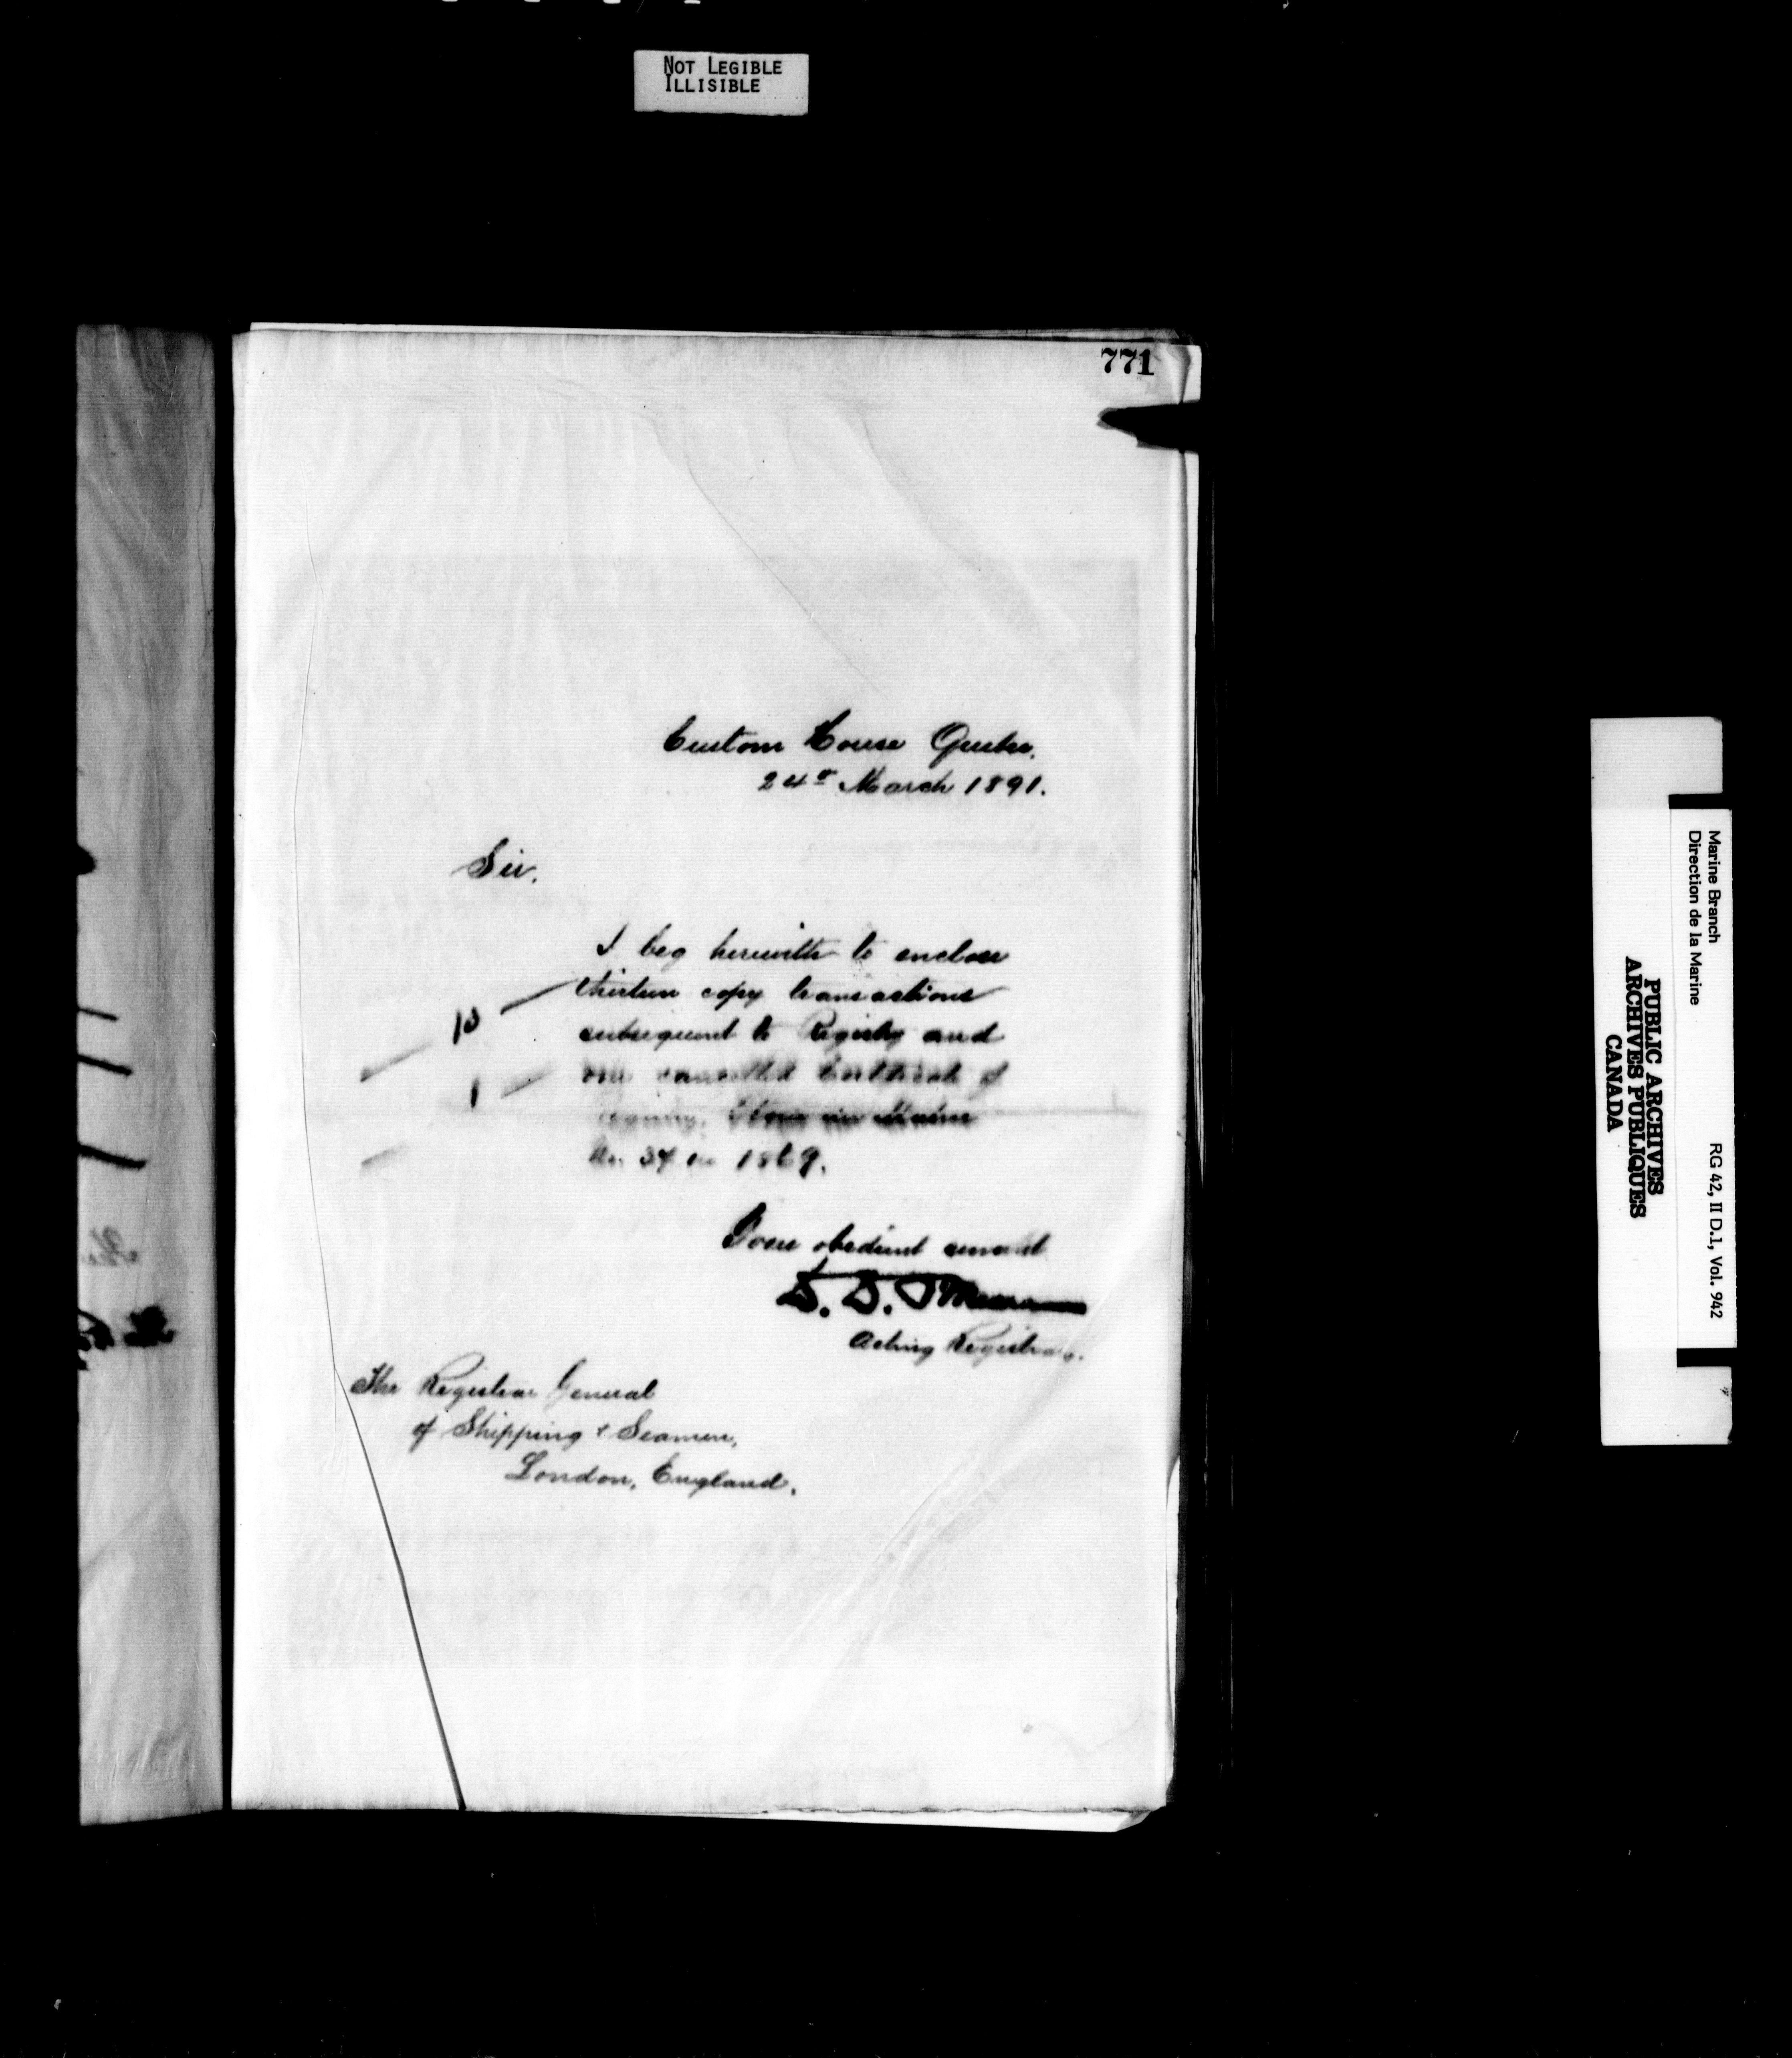 NOT LEGIBLE
ILLISIBLE
771
Custom House Quebec.
24th March 1891.
Sir,
I beg herewith to enclose
13 thirteen copy transactions
subsequent to Registry and
1 one cancelled Certificate of
No. 34 in 1869.
Your obedient servant
Acting Registrar.
The Registrar General
of Shipping & Seamen,
London, England.
Marine Branch
Direction de la Marine
RG 42, II D.1, Vol. 942
PUBLIC ARCHIVES
ARCHIVES PUBLIQUES
CANADA